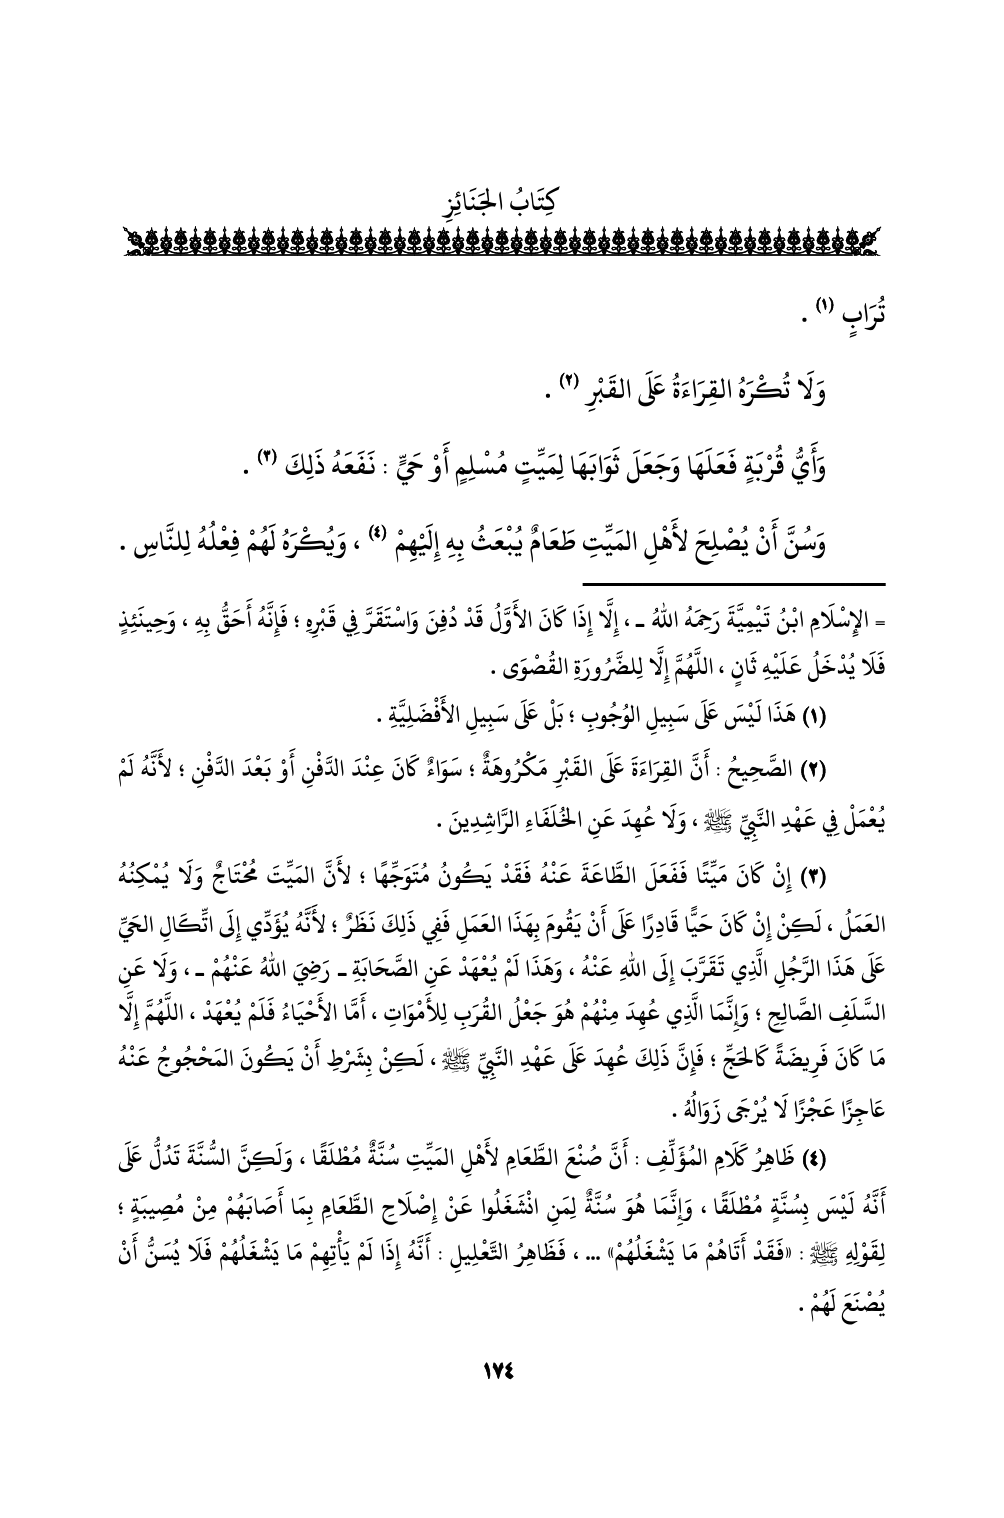 كِتَابُ الجَنَائِزِ
تُرَابٍ (١) .
وَلَا تُكْرَهُ القِرَاءَةُ عَلَى القَبْرِ (٢) .
وَأَيُّ قُرْبَةٍ فَعَلَهَا وَجَعَلَ ثَوَابَهَا لِمَيِّتٍ مُسْلِمٍ أَوْ حَيٍّ : نَفَعَهُ ذَلِكَ (٣) .
وَسُنَّ أَنْ يُصْلِحَ لأَهْلِ المَيِّتِ طَعَامٌ يُبْعَثُ بِهِ إِلَيْهِمْ (٤) ، وَيُكْرَهُ لَهُمْ فِعْلُهُ لِلنَّاسِ .
= الإِسْلَامِ ابْنُ تَيْمِيَّةَ رَحِمَهُ اللهُ ـ ، إِلَّا إِذَا كَانَ الأَوَّلُ قَدْ دُفِنَ وَاسْتَقَرَّ فِي قَبْرِهِ ؛ فَإِنَّهُ أَحَقُّ بِهِ ، وَحِينَئِذٍ
فَلَا يُدْخَلُ عَلَيْهِ ثَانٍ ، اللَّهُمَّ إِلَّا لِلضَّرُورَةِ القُصْوَى .
(١) هَذَا لَيْسَ عَلَى سَبِيلِ الوُجُوبِ ؛ بَلْ عَلَى سَبِيلِ الأَفْضَلِيَّةِ .
(٢) الصَّحِيحُ : أَنَّ القِرَاءَةَ عَلَى القَبْرِ مَكْرُوهَةٌ ؛ سَوَاءٌ كَانَ عِنْدَ الدَّفْنِ أَوْ بَعْدَ الدَّفْنِ ؛ لأَنَّهُ لَمْ
يُعْمَلْ فِي عَهْدِ النَّبِيِّ ﷺ ، وَلَا عُهِدَ عَنِ الخُلَفَاءِ الرَّاشِدِينَ .
(٣) إِنْ كَانَ مَيِّتًا فَفَعَلَ الطَّاعَةَ عَنْهُ فَقَدْ يَكُونُ مُتَوَجِّهًا ؛ لأَنَّ المَيِّتَ مُحْتَاجٌ وَلَا يُمْكِنُهُ
العَمَلُ ، لَكِنْ إِنْ كَانَ حَيًّا قَادِرًا عَلَى أَنْ يَقُومَ بِهَذَا العَمَلِ فَفِي ذَلِكَ نَظَرٌ ؛ لأَنَّهُ يُؤَدِّي إِلَى اتِّكَالِ الحَيِّ
عَلَى هَذَا الرَّجُلِ الَّذِي تَقَرَّبَ إِلَى اللهِ عَنْهُ ، وَهَذَا لَمْ يُعْهَدْ عَنِ الصَّحَابَةِ ـ رَضِيَ اللهُ عَنْهُمْ ـ ، وَلَا عَنِ
السَّلَفِ الصَّالِحِ ؛ وَإِنَّمَا الَّذِي عُهِدَ مِنْهُمْ هُوَ جَعْلُ القُرَبِ لِلأَمْوَاتِ ، أَمَّا الأَحْيَاءُ فَلَمْ يُعْهَدْ ، اللَّهُمَّ إِلَّا
مَا كَانَ فَرِيضَةً كَالحَجِّ ؛ فَإِنَّ ذَلِكَ عُهِدَ عَلَى عَهْدِ النَّبِيِّ ﷺ ، لَكِنْ بِشَرْطِ أَنْ يَكُونَ المَحْجُوجُ عَنْهُ
عَاجِزًا عَجْزًا لَا يُرْجَى زَوَالُهُ .
(٤) ظَاهِرُ كَلَامِ المُؤَلِّفِ : أَنَّ صُنْعَ الطَّعَامِ لأَهْلِ المَيِّتِ سُنَّةٌ مُطْلَقًا ، وَلَكِنَّ السُّنَّةَ تَدُلُّ عَلَى
أَنَّهُ لَيْسَ بِسُنَّةٍ مُطْلَقًا ، وَإِنَّمَا هُوَ سُنَّةٌ لِمَنِ انْشَغَلُوا عَنْ إِصْلَاحِ الطَّعَامِ بِمَا أَصَابَهُمْ مِنْ مُصِيبَةٍ ؛
لِقَوْلِهِ ﷺ : «فَقَدْ أَتَاهُمْ مَا يَشْغَلُهُمْ» ... ، فَظَاهِرُ التَّعْلِيلِ : أَنَّهُ إِذَا لَمْ يَأْتِهِمْ مَا يَشْغَلُهُمْ فَلَا يُسَنُّ أَنْ
يُصْنَعَ لَهُمْ .
١٧٤